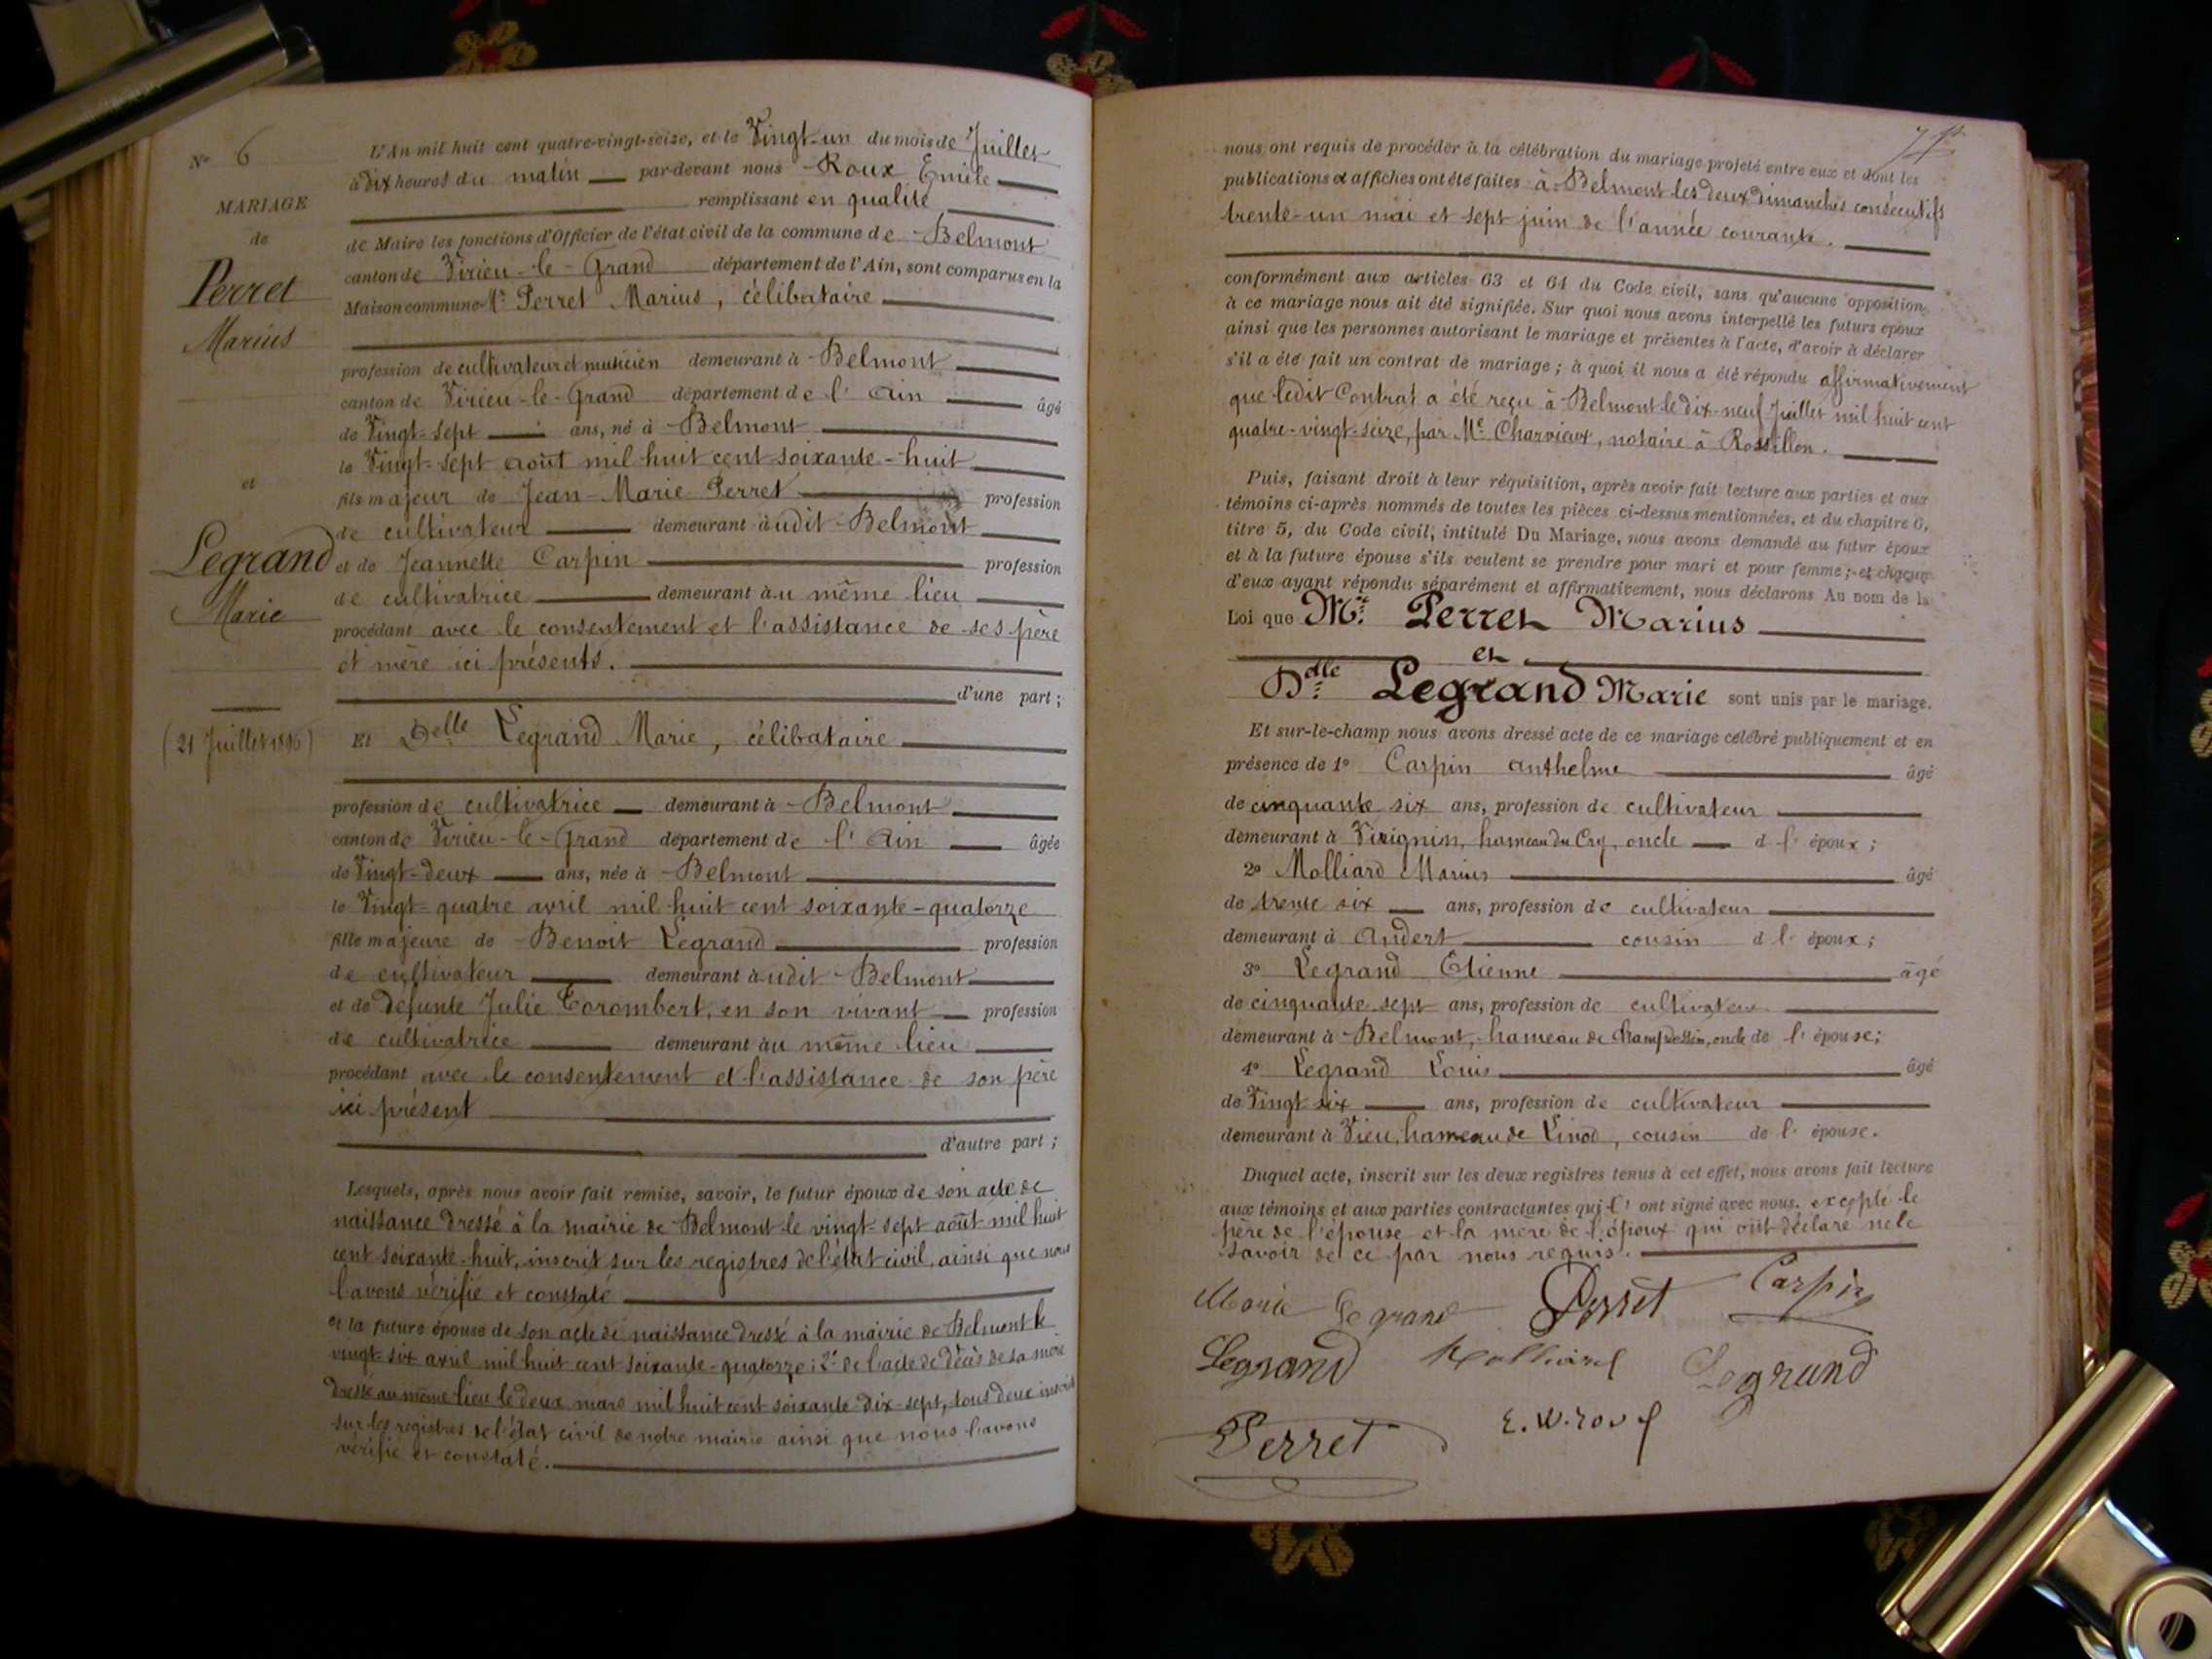 N° 6
MARIAGE
de
Perret
Marius
et
Legrand
Marie
(21 Juillet 1896)
L'An mil huit cent quatre-vingt-seize, et le Vingt-un du mois de Juillet
à dix heures du matin par-devant nous Roux Emile
remplissant en qualité
de Maire les fonctions d'Officier de l'état civil de la commune de Belmont
canton de Virieu-le-Grand département de l'Ain, sont comparus en la
Maison commune Mr Perret Marius, célibataire
profession de cultivateur et musicien demeurant à Belmont
canton de Virieu-le-Grand département de l'Ain âgé
de Vingt-sept ans, né à Belmont
le Vingt-sept août mil huit cent soixante-huit
fils majeur de Jean-Marie Perret profession
de cultivateur demeurant audit Belmont
et de Jeannette Carpin profession
de cultivatrice demeurant au même lieu
procédant avec le consentement et l'assistance de ses père
et mère ici présents.
d'une part;
Et Delle Legrand Marie, célibataire
profession de cultivatrice demeurant à Belmont
canton de Virieu-le-Grand département de l'Ain âgée
de Vingt-deux ans, née à Belmont
le Vingt-quatre avril mil huit cent soixante-quatorze
fille majeure de Benoit Legrand profession
de cultivateur demeurant audit Belmont
et de défunte Julie Corombert, en son vivant profession
de cultivatrice demeurant au même lieu
procédant avec le consentement et l'assistance de son père
ici présent
d'autre part;
Lesquels, après nous avoir fait remise, savoir, le futur époux de son acte de
naissance dressé à la mairie de Belmont le vingt-sept août mil huit
cent soixante-huit, inscrit sur les registres de l'état civil, ainsi que nous
l'avons vérifié et constaté
et la future épouse de son acte de naissance dressé à la mairie de Belmont le
vingt-six avril mil huit cent soixante-quatorze; 2° de l'acte de décès de sa mère
dressé au même lieu le deux mars mil huit cent soixante-dix-sept, tous deux inscrits
sur les registres de l'état civil de notre mairie ainsi que nous l'avons
vérifié et constaté.
nous ont requis de procéder à la célébration du mariage projeté entre eux et dont les
publications et affiches ont été faites à Belmont les deux dimanches consécutifs
trente-un mai et sept juin de l'année courante.
conformément aux articles 63 et 64 du Code civil, sans qu'aucune opposition
à ce mariage nous ait été signifiée. Sur quoi nous avons interpellé les futurs époux
ainsi que les personnes autorisant le mariage et présentes à l'acte, d'avoir à déclarer
s'il a été fait un contrat de mariage; à quoi il nous a été répondu affirmativement
que ledit Contrat a été reçu à Belmont le dix-neuf Juillet mil huit cent
quatre-vingt-seize, par Me Charvieux, notaire à Rossillon.
Puis, faisant droit à leur réquisition, après avoir fait lecture aux parties et aux
témoins ci-après nommés de toutes les pièces ci-dessus mentionnées, et du chapitre 6,
titre 5, du Code civil, intitulé Du Mariage, nous avons demandé au futur époux
et à la future épouse s'ils veulent se prendre pour mari et pour femme; et chacun
d'eux ayant répondu séparément et affirmativement, nous déclarons Au nom de la
Loi que Mr Perret Marius
et
Delle Legrand Marie sont unis par le mariage.
Et sur-le-champ nous avons dressé acte de ce mariage célébré publiquement et en
présence de 1° Carpin anthelme âgé
de cinquante six ans, profession de cultivateur
demeurant à Virignin, hameau du Cry, oncle d l'époux;
2° Molliard Marius âgé
de trente six ans, profession de cultivateur
demeurant à Andert cousin d l'époux;
3° Legrand Etienne âgé
de cinquante sept ans, profession de cultivateur
demeurant à Belmont, hameau de oncle de l'épouse;
4° Legrand Louis âgé
de Vingt six ans, profession de cultivateur
demeurant à Vieu, hameau de Linod, cousin de l'épouse.
Duquel acte, inscrit sur les deux registres tenus à cet effet, nous avons fait lecture
aux témoins et aux parties contractantes qui l'ont signé avec nous. excepté le
père de l'épouse et la mère de l'époux qui ont déclaré ne le
savoir de ce par nous requis.
Marie Legrand Perret Carpin
Legrand Molliard Legrand
Perret